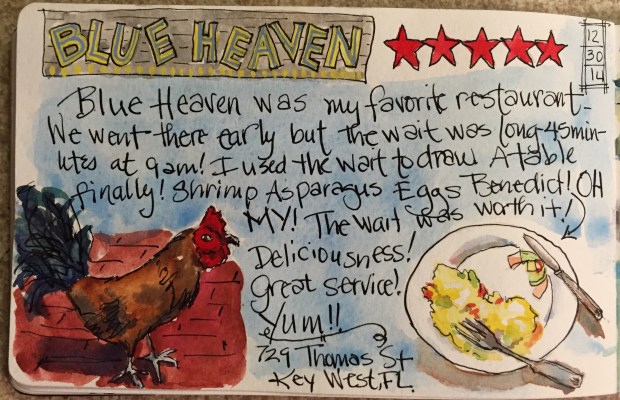 BLUE HEAVEN
12
30
14
Blue Heaven was my favorite restaurant-
We went there early but the wait was long-45 min-
utes at 9am! I used the wait to draw A table
finally! Shrimp Asparagus Eggs Benedict! OH
MY! The wait was worth it!
Deliciousness!
Great service!
Yum!!
729 Thomas St
Key West, FL